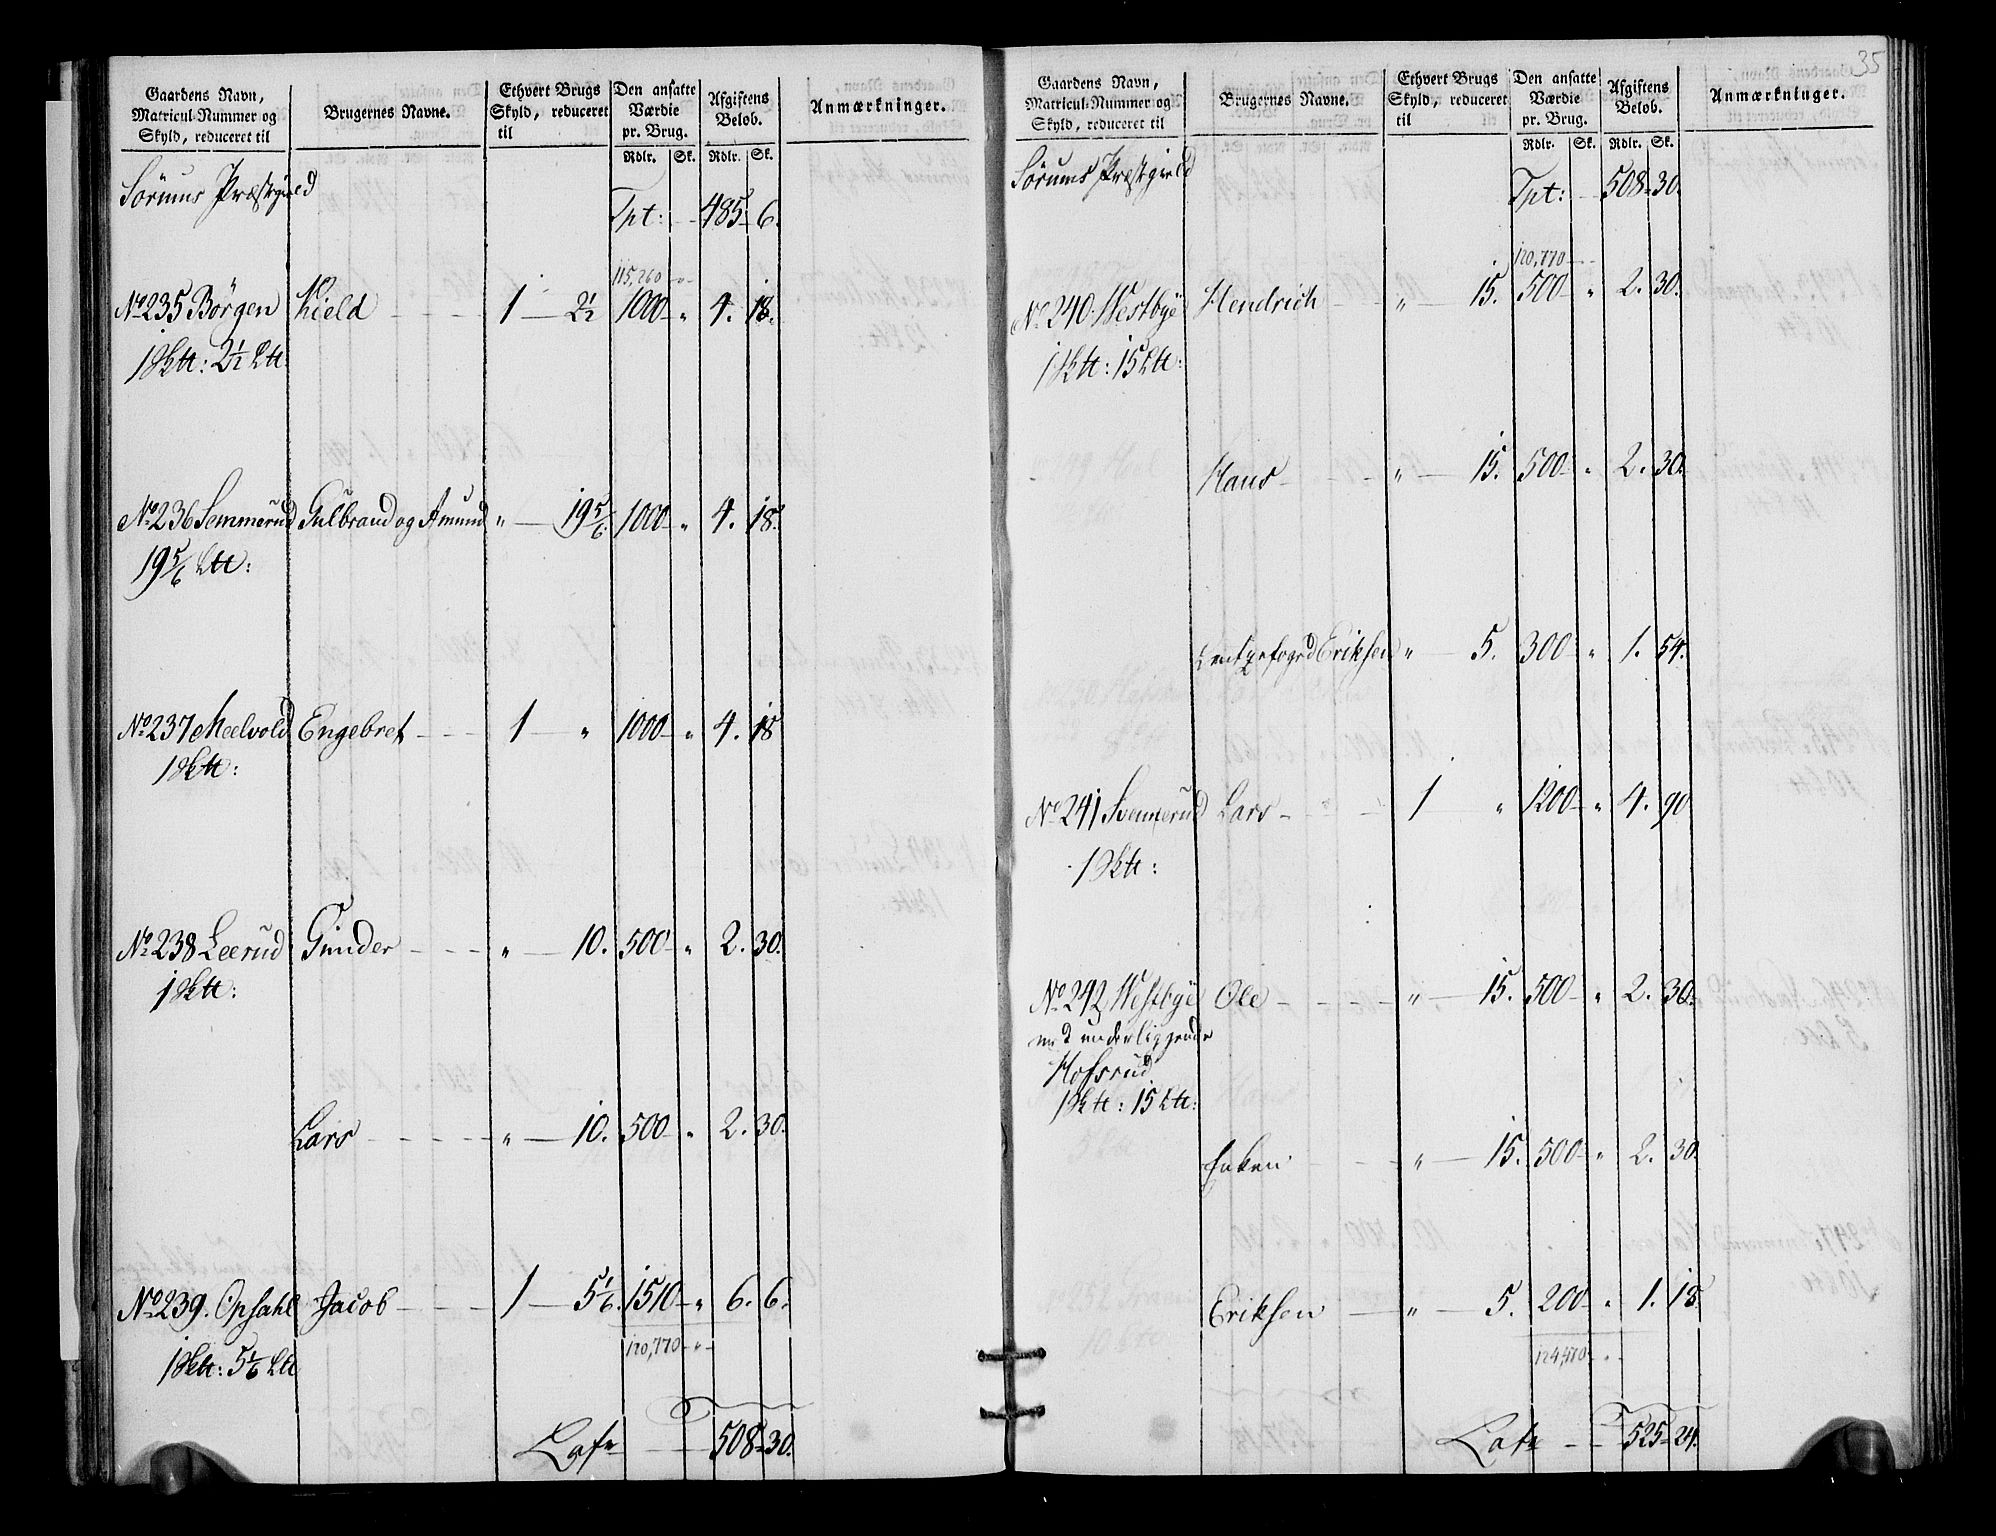 35
Gaardens Navn, Matricul-Nummer og Skyld, reduceret til | Brugernes Navne. | Ethvert Brugs Skyld, reduceret til | Den ansatte Værdie pr. Brug. | Afgiftens Beløb. | Anmærkninger.
Rdlr. Sk. Rdlr. Sk.
Sørums Præstegield
Tpt: 485 6.
115,260 "
No 235 Børgen Kield 1 2½ 1000 " 4. 18.
1 Skt: 2½ Lt:
No 236 Semmerud Gulbrand og Amund " 19 5/6 1000 " 4. 18.
19 5/6 Lt:
No 237 Meelvold Engebret 1 " 1000 " 4. 18
1 Skt:
No 238 Leerud Gunder " 10. 500 " 2. 30.
1 Skt:
Lars " 10. 500 " 2. 30.
No 239. Opsahl Jacob 1 5 1/6. 1510 " 6. 6.
120,770 "
1 Skt: 5 1/6 Lt
Lats 508 30.
Gaardens Navn, Matricul-Nummer og Skyld, reduceret til | Brugernes Navne. | Ethvert Brugs Skyld, reduceret til | Den ansatte Værdie pr. Brug. | Afgiftens Beløb. | Anmærkninger.
Rdlr. Sk. Rdlr. Sk.
Sørums Præstgield
Tpt: 508 30.
120,770
No 240. Westbye Hendrich " 15. 500 " 2. 30.
1 Skt: 15 Lt:
Hans " 15. 500 " 2. 30.
Eriksen " 5. 300 " 1. 54.
No 241 Svennerud Lars 1 " 1200 " 4. 90
1 Skt:
No 242 Westbye Ole " 15. 500 " 2. 30.
med underliggende
Hofsrud
1 Skt: 15 Lt:
Enken " 15. 500 " 2. 30.
Eriksen " 5. 200 " 1. 18.
124,470
Lats 525 24.